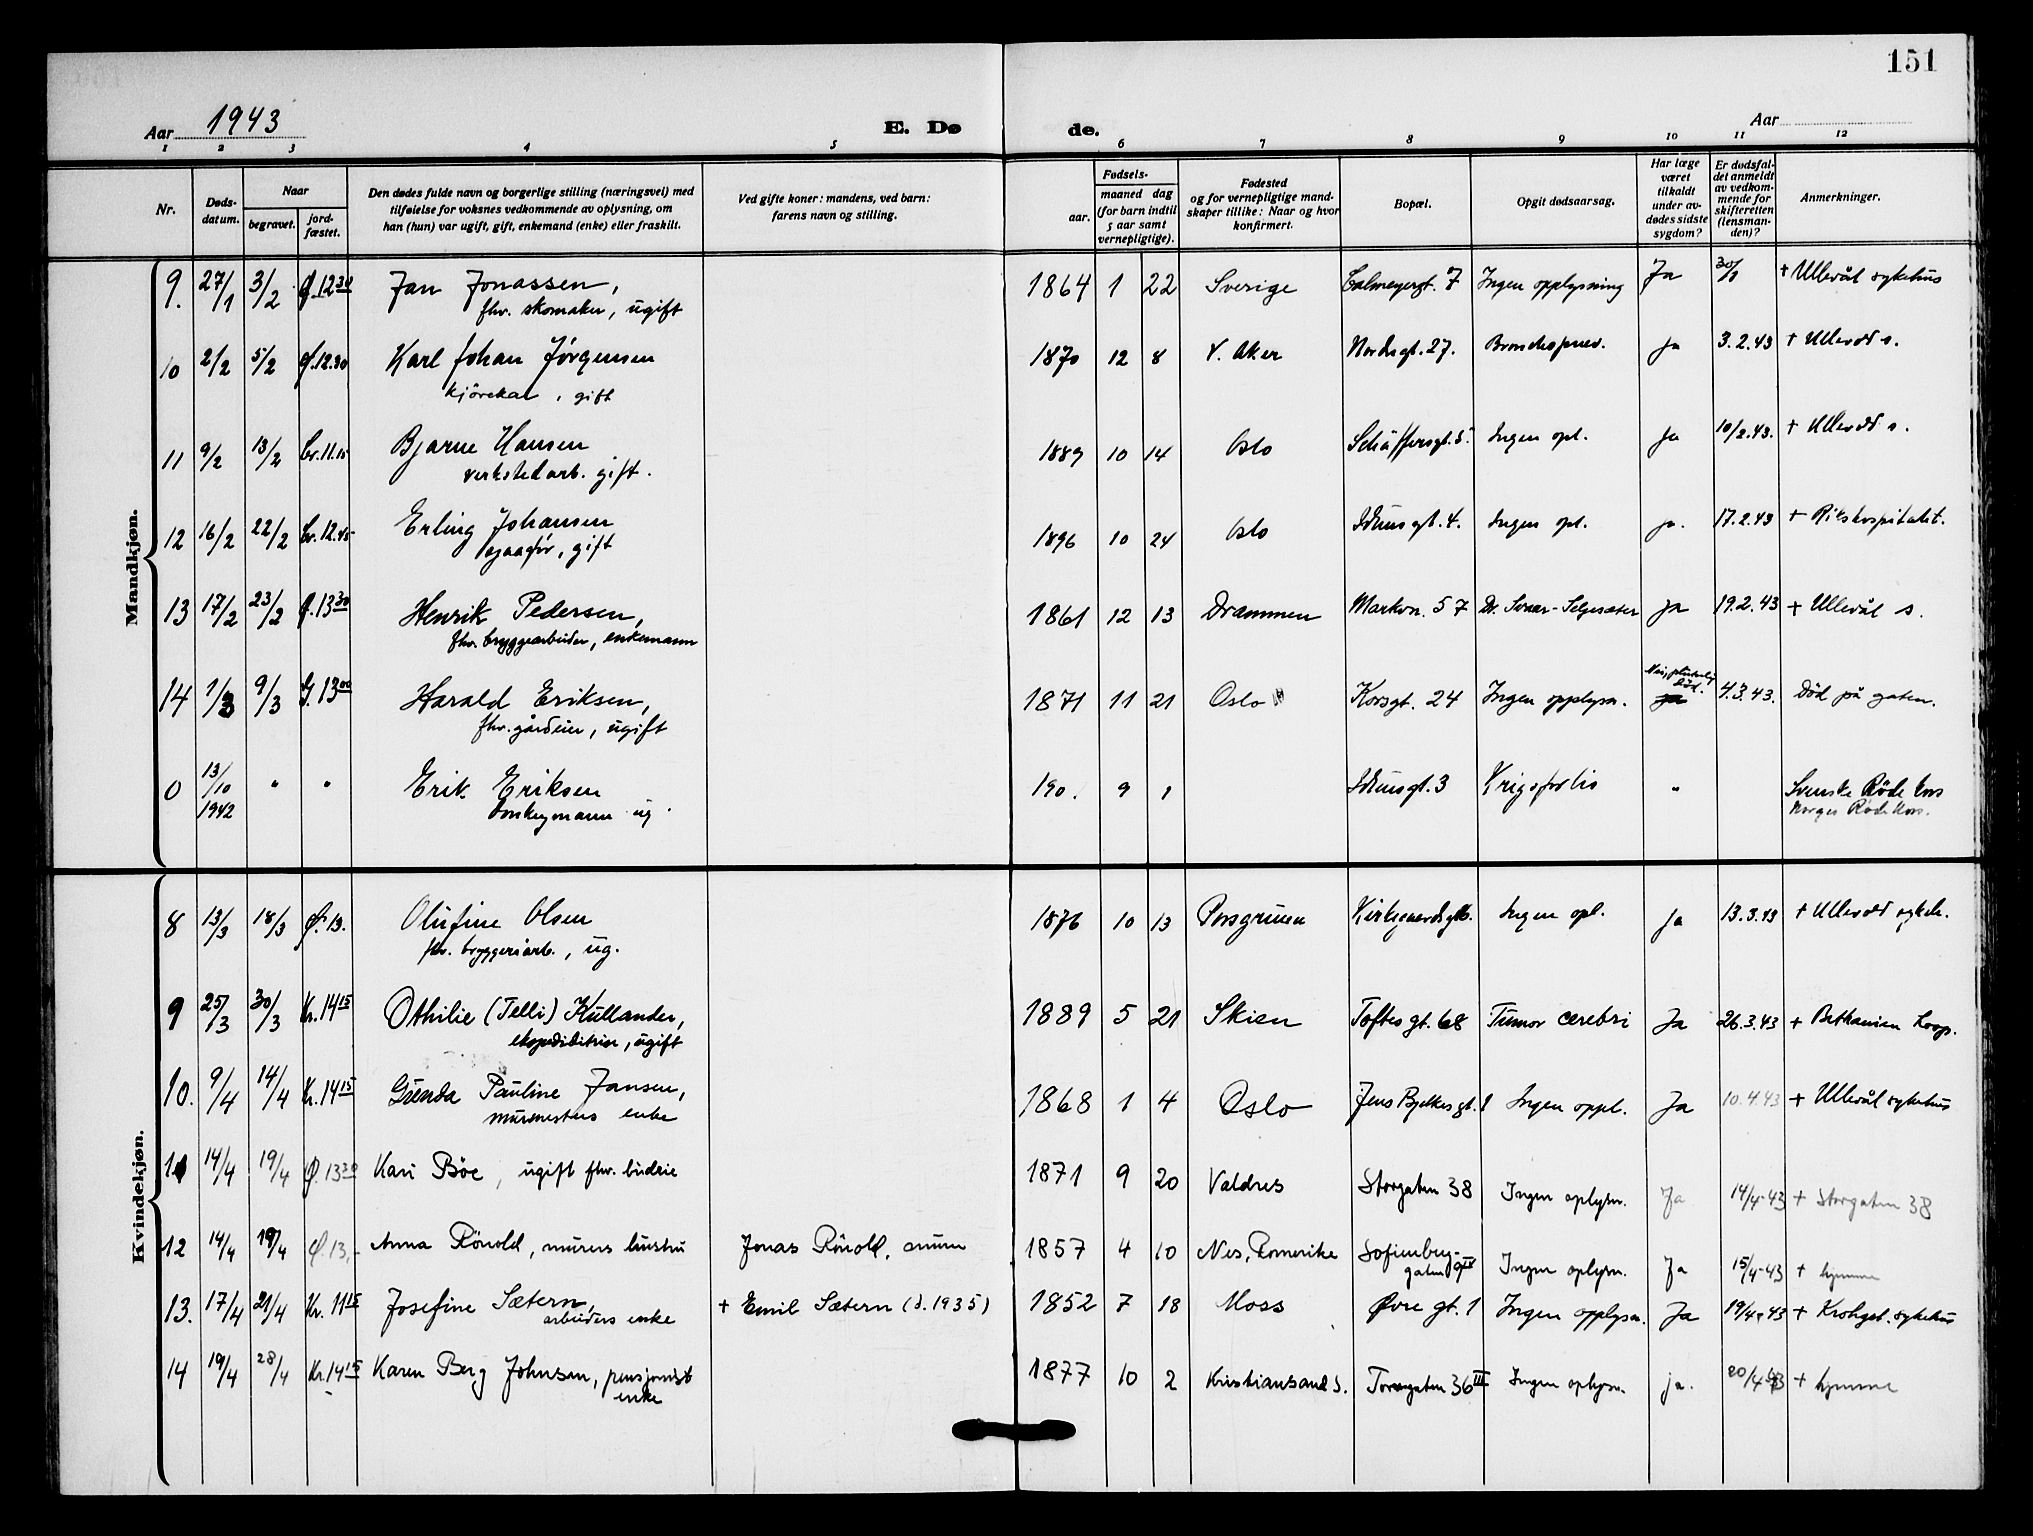 151
Aar 1943
E. Dø de.
Aar
1 2 3 4 5 6 7 8 9 10 11 12
Nr.
Døds-
datum.
Naar
begravet.
jord-
fæstet.
Den dødes fulde navn og borgerlige stilling (næringsvei) med
tilføielse for voksnes vedkommende av oplysning, om
han (hun) var ugift, gift, enkemand (enke) eller fraskilt.
Ved gifte koner: mandens, ved barn:
farens navn og stilling.
Fødsels-
aar.
maaned dag
(for barn indtil
5 aar samt
vernepligtige).
Fødested
og for vernepligtige mand-
skaper tillike: Naar og hvor
konfirmert.
Bopæl.
Opgit dødsaarsag.
Har læge
været
tilkaldt
under av-
dødes sidste
sygdom?
Er dødsfal-
det anmeldt
av vedkom-
mende for
skifteretten
(lensman-
den)?
Anmerkninger.
Mandkjøn.
9. 27/1 3/2 12 30 Jan Jonassen, 1864 1 22 Sverige Calmeyergt. 7 Ingen opplysning Ja 30/1 + Ullevål sykehus
fhv. skomaker, ugift
10 2/2 5/2 12.30 Karl Johan Jørgensen 1870 12 8 V. Aker Nordregt. 27. Bronchopneu. ja 3.2.43 + Ullevål s.
kjørekar, gift
11 9/2 13/2 Cr. 11.15 Bjarne Hansen 1889 10 14 Oslo Schäffersgt. 5. Ingen opl. ja 10/2.43. + Ullevål s.
verkstedarb. gift.
12 16/2 22/2 Cr. 12.45 Erling Johansen 1896 10 24 Oslo Idunsgt. 4. Ingen opl. ja. 17.2.43 + Rikshospitalet.
sjaafør, gift
13 17/2 23/2 13 30 Henrik Pedersen, 1861 12 13 Drammen Markvn. 57 Dr. Svaar-Seljesæter ja 19.2.43 + Ullevål s.
fhv. bryggearbeider, enkemann
14 1/3 9/3 13 00 Harald Eriksen, 1871 11 21 Oslo Korsgt. 24 Ingen opplysn. Nei, plutselig død. ja 4.3.43. Død på gaten.
fhv. gårdeier, ugift
0 13/10 1942 " " Erik Eriksen 190. 9 1 Idunsgt. 3 Krigsforlis " Svenske Røde Kors
donkeymann ug. Norges Røde Kors.
Kvindekjøn.
8 13/3 18/3 13. Olufine Olsen 1876 10 13 Porsgrunn ja 13.3.43 + Ullevål sykeh.
fhv. bryggeriarb., ug.
9 25/3 30/3 Kr. 14 15 Othilie (Telli) Kullander, 1889 5 21 Skien Toftes gt. 68 Tumor cerebri Ja 26.3.43 + Bethanien hosp.
ekspeditrise, ugift
10. 9/4 14/4 Kr. 14 15 Gunda Pauline Jansen, 1868 1 4 Oslo Jens Bjelkes gt. 1 Ingen oppl. Ja 10.4.43 + Ullevål sykehus
murmesters enke
11 14/4 19/4 13 30 Kari Bøe, ugift fhv. budeie 1871 9 20 Valdres Storgaten 38 Ingen oplysn. Ja 14/4-43 + Storgaten 38
12 14/4 19/4 13,- Anna Rönold, murers hustru Jonas Rönold, murer 1857 4 10 Nes, Romerike Sofienberg-
gaten 9 IV Ingen oplysn. Ja 15/4-43 + hjemme
13. 17/4 21/4 Kr. 11 15 Josefine Sætern, + Emil Sætern (d. 1935) 1852 7 18 Moss Øvre gt. 1 Ingen opplysn. Ja 19/4-43 + Krohgst. sykehus
arbeiders enke
14 19/4 28/4 Kr. 14 15 Karen Berg Johnsen, pensjonist 1877 10 2 Kristiansand S. Torvgaten 36 III Ingen oplysn. ja. 20/4 43 + hjemme
enke